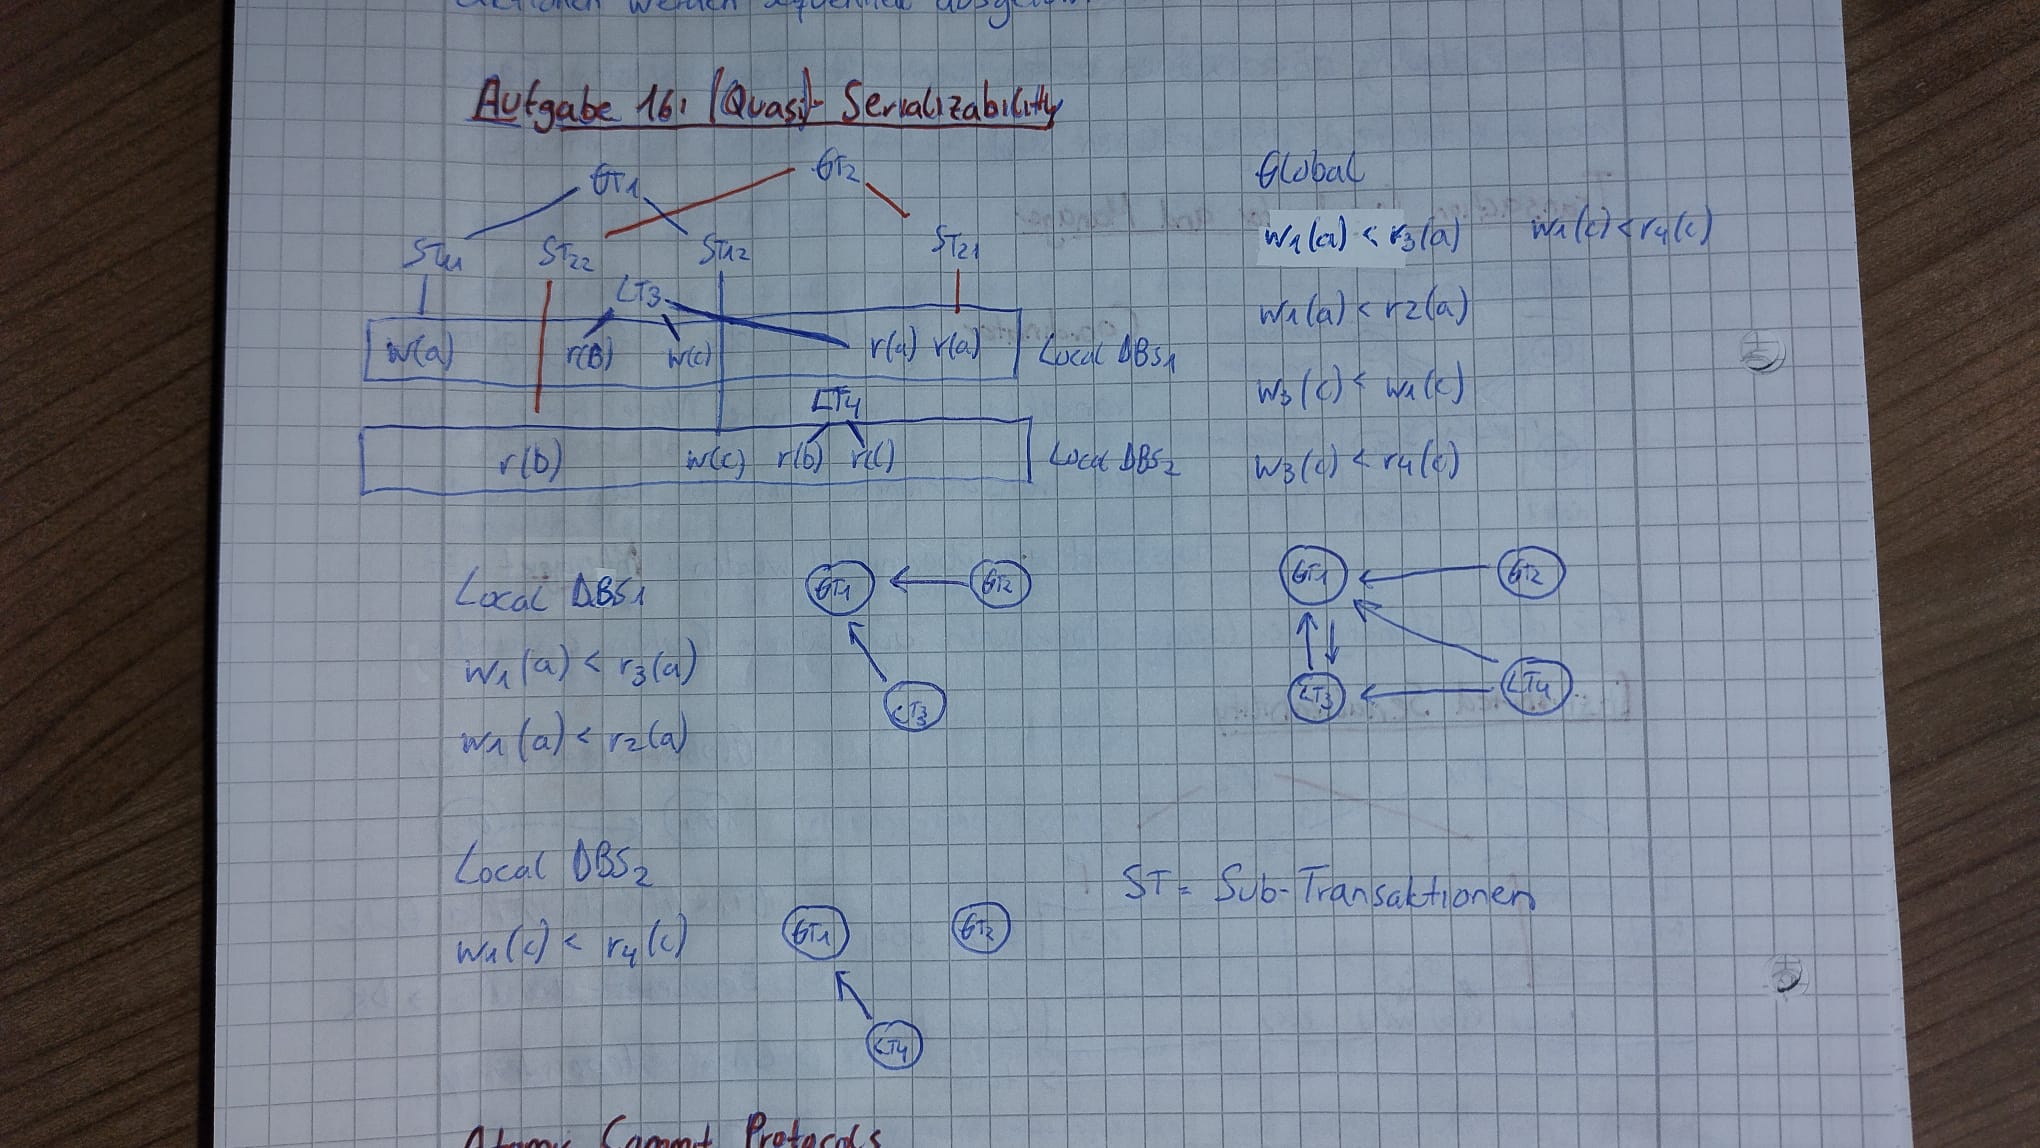 Aufgabe 16: (Quasi)- Serializability
GT1 GT2
ST11 ST22 ST12 ST21
LT3
w(a) r(b) w(c) r(a) r(a) Local DBS1
LT4
r(b) w(c) r(b) r(c) Local DBS2
Global
w1(a) < r3(a) w1(c) < r4(c)
w1(a) < r2(a)
w3(c) < w1(c)
w3(c) < r4(c)
Local DBS1
w1(a) < r3(a)
w1(a) < r2(a)
GT1 GT2
LT3
GT1 GT2
LT3 LT4
Local DBS2
w1(c) < r4(c)
GT1 GT2
LT4
ST = Sub-Transaktionen
Atomic Commit Protocols